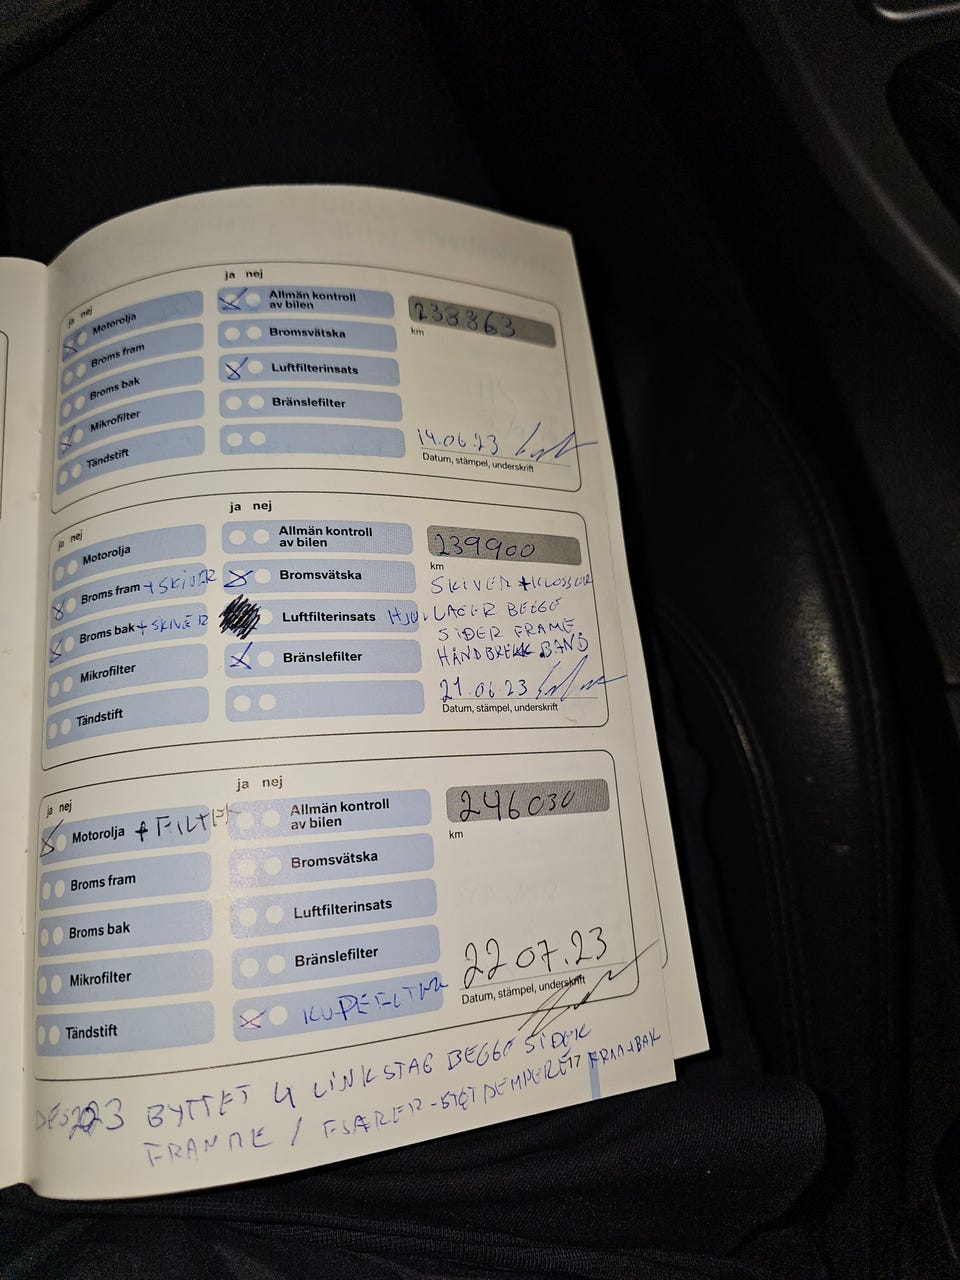 ja nej
ja nej
Motorolja
Allmän kontroll
av bilen
238863
km
Broms fram
Bromsvätska
Broms bak
Luftfilterinsats
Mikrofilter
Bränslefilter
Tändstift
14.06.23
Datum, stämpel, underskrift
ja nej
ja nej
Motorolja
Allmän kontroll
av bilen
239900
km
Broms fram + SKIVER
Bromsvätska
SKIVER + KLOSSER
Broms bak + SKIVER
Luftfilterinsats
HJULLAGER BEGGE
SIDER FRAME
Mikrofilter
Bränslefilter
HÅNDBREKK BÅND
Tändstift
21.06.23
Datum, stämpel, underskrift
ja nej
ja nej
Motorolja + FILTER
Allmän kontroll
av bilen
246030
km
Broms fram
Bromsvätska
Broms bak
Luftfilterinsats
Mikrofilter
Bränslefilter
22 07.23
Datum, stämpel, underskrift
Tändstift
KUPEFILTER
BYTTET 4 LINKSTAG BEGGE SIDER
FRAMME / FJÆRER
17